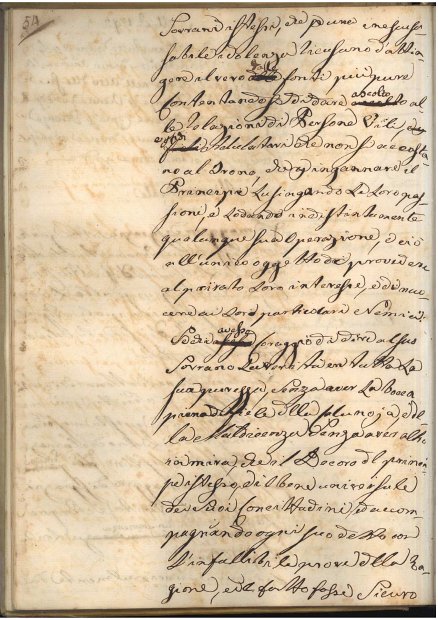 54
Sovrani istessi, che p una inescu-
sabile indolenza ricusano d'attin
gere al vero dalle fonti più pure
contentandosi di dare ascolto al
le relazioni di Persone Vili,
che non s'accosta
no al Trono, che p ingannare il
Principe Lusingando le loro pas
sioni, e Lodando indistintamente
qualunque sua Operazione, e ciò
all'unico oggetto di provvedere
al privato loro interesse, e di nuo
cere ai loro particolari Nemici.
avesse coraggio di dire al suo
Sovrano la verità in tutta la
sua purezza, senza aver la bocca
piena di fiele della
la Maldicenza, senza aver altro
in mira, che il Decoro del princi
pe istesso, del bene universale
de suoi Concittadini, ed accom
pagnando ogni suo detto con
l'infallibile prove della Ra
gione, e del fatto fosse Sicuro